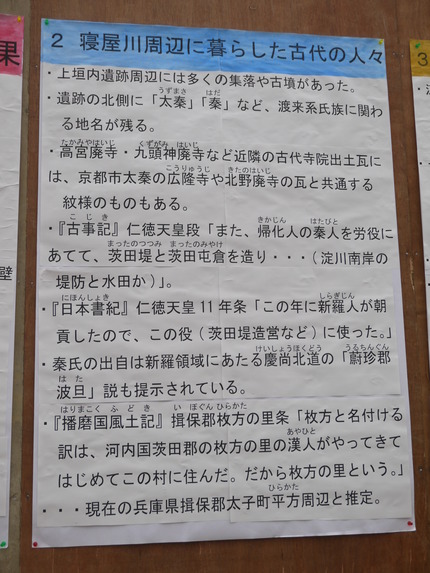 2 寝屋川周辺に暮らした古代の人々
・上垣内遺跡周辺には多くの集落や古墳があった。
うずまさ はだ
・遺跡の北側に「太秦」「秦」など、渡来系氏族に関わ
る地名が残る。
たかみやはいじ くずがみ はいじ
・高宮廃寺・九頭神廃寺など近隣の古代寺院出土瓦に
こうりゅうじ きたのはいじ
は、京都市太秦の広隆寺や北野廃寺の瓦と共通する
紋様のものもある。
こじき きかじん はたびと
・『古事記』仁徳天皇段「また、帰化人の秦人を労役に
まったのつつみ まったのみやけ
あてて、茨田堤と茨田屯倉を造り・・・(淀川南岸の
堤防と水田か)」。
にほんしょき しらぎじん
・『日本書紀』仁徳天皇11年条「この年に新羅人が朝
貢したので、この役(茨田堤造営など)に使った。」
けいしょうほくどう うるちんぐん
・秦氏の出自は新羅領域にあたる慶尚北道の「蔚珍郡
はた
波旦」説も提示されている。
はりまこく ふどき いぼぐん ひらかた
・『播磨国風土記』揖保郡枚方の里条「枚方と名付ける
あやひと
訳は、河内国茨田郡の枚方の里の漢人がやってきて
はじめてこの村に住んだ。だから枚方の里という。」
ひらかた
・・・現在の兵庫県揖保郡太子町平方周辺と推定。
果
壁
3